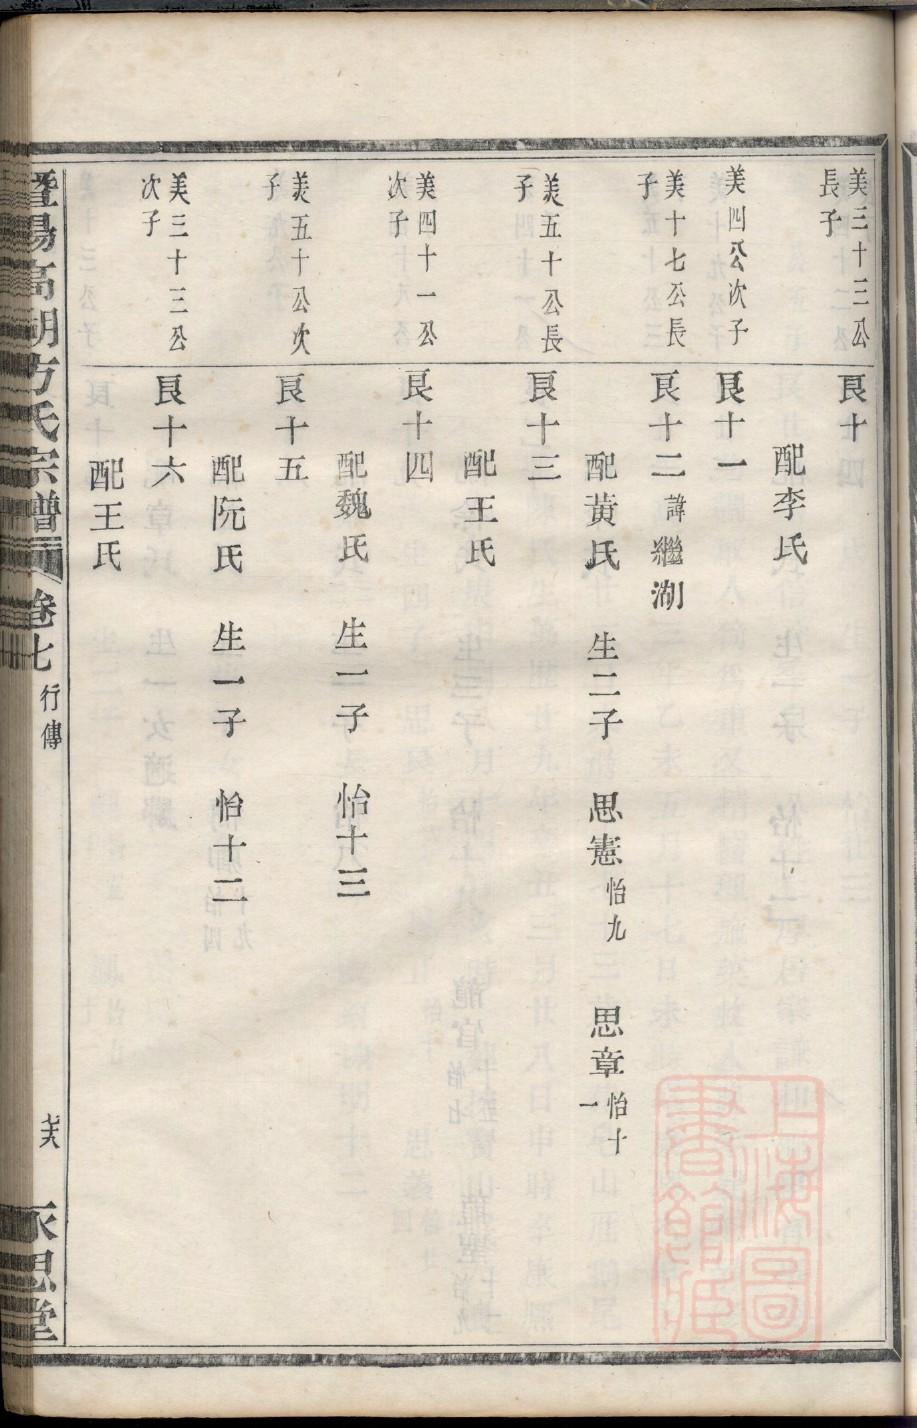 美三十三公
長子
艮十
配李氏
美四公次子
艮十一
美十七公長
子
艮十二 諱繼湖
配黃氏 生二子 思憲 怡九 思章 怡十一
美五十公長
子
艮十三
配王氏
美四十一公
次子
艮十四
配魏氏 生一子 怡十三
美五十公次
子
艮十五
配阮氏 生一子 怡十二
美三十三公
次子
艮十六
配王氏
暨陽高湖方氏宗譜 卷七 行傳 永思堂
上海圖書館藏